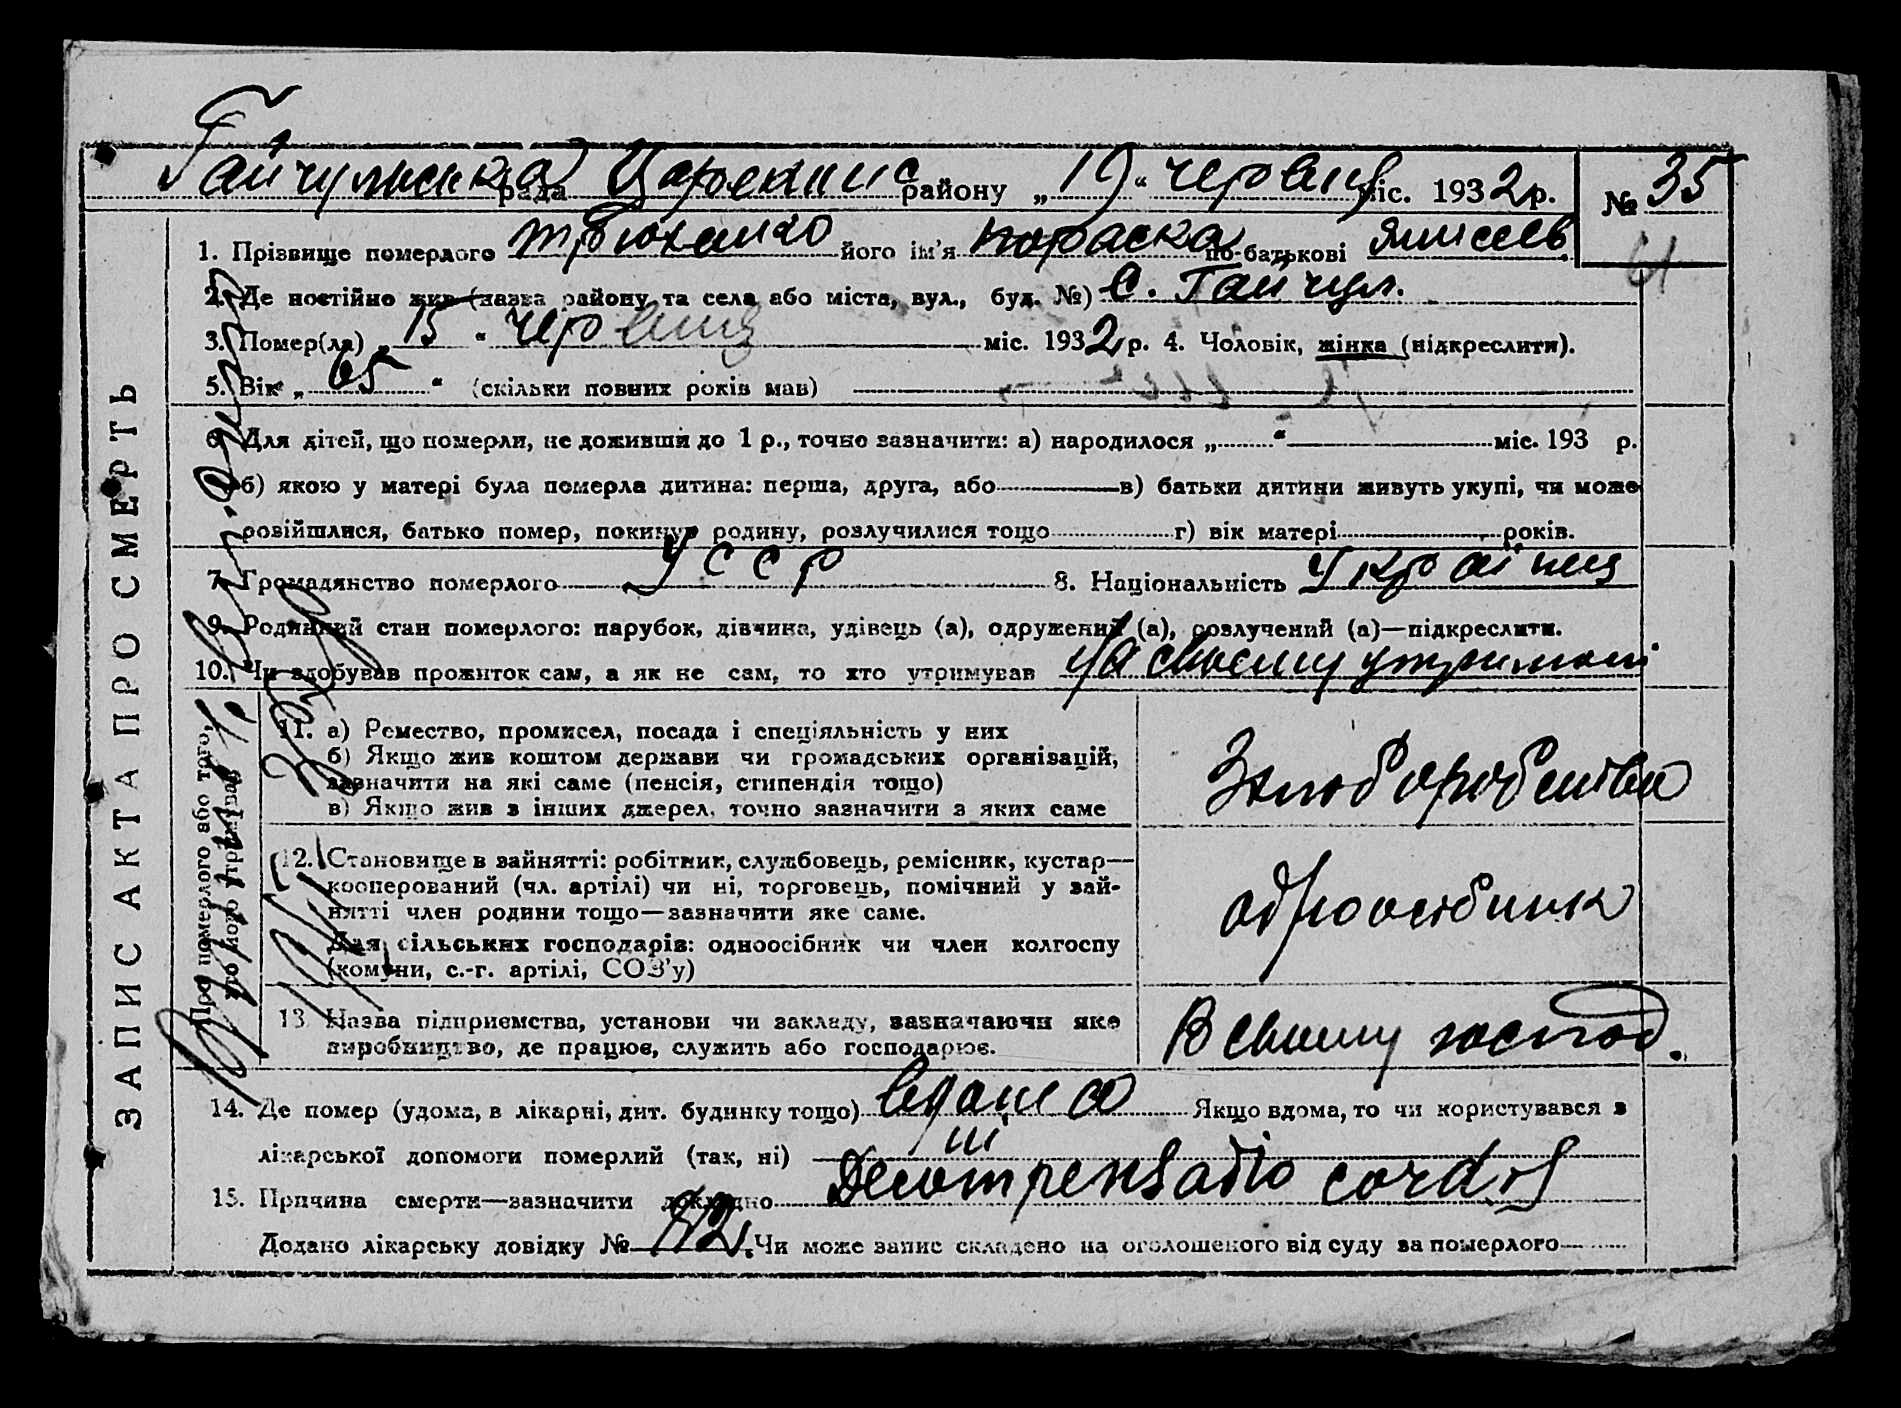 Гайчульська рада Царекинс району „19“ червня міс. 1932 р.
№ 35
61
1. Прізвище померлого його ім'я Параска по-батькові
2. Де постійно жив (назва району та села або міста, вул., буд. №) С. Гайчул.
3. Помер(ла) „15“ червня міс. 1932 р. 4. Чоловік, жінка (підкреслити).
5. Вік „65“ (скільки повних років мав)
6. Для дітей, що померли, не доживши до 1 р., точно зазначити: а) народилося „ “ міс. 193 р.
б) якою у матері була померла дитина: перша, друга, або в) батьки дитини живуть укупі, чи може
розійшлися, батько помер, покинув родину, розлучилися тощо г) вік матері років.
7. Громадянство померлого УССР 8. Національність Українця
9. Родинний стан померлого: парубок, дівчина, удівець (а), одружений (а), розлучений (а)—підкреслити.
10. Чи здобував прожиток сам, а як не сам, то хто утримував На своєму утриманні
ЗАПИС АКТА ПРО СМЕРТЬ
Про померлого або того, хто його утримував
11. а) Ремество, промисел, посада і спеціяльність у них
б) Якщо жив коштом держави чи громадських організацій,
зазначити на які саме (пенсія, стипендія тощо)
в) Якщо жив з інших джерел, точно зазначити з яких саме
12. Становище в зайнятті: робітник, службовець, ремісник, кустар—
кооперований (чл. артілі) чи ні, торговець, помічний у зай-
нятті член родини тощо—зазначити яке саме.
Для сільських господарів: одноосібник чи член колгоспу
(комуни, с.-г. артілі, СОЗ'у)
одноосібник
13. Назва підприємства, установи чи закладу, зазначаючи яке
виробництво, де працює, служить або господарює.
В своєму господ.
14. Де помер (удома, в лікарні, дит. будинку тощо) вдома Якщо вдома, то чи користувався з
лікарської допомоги померлий (так, ні) ні
15. Причина смерти—зазначити докладно Decompensatio cordis
Додано лікарську довідку № 112. Чи може запис складено на оголошеного від суду за померлого